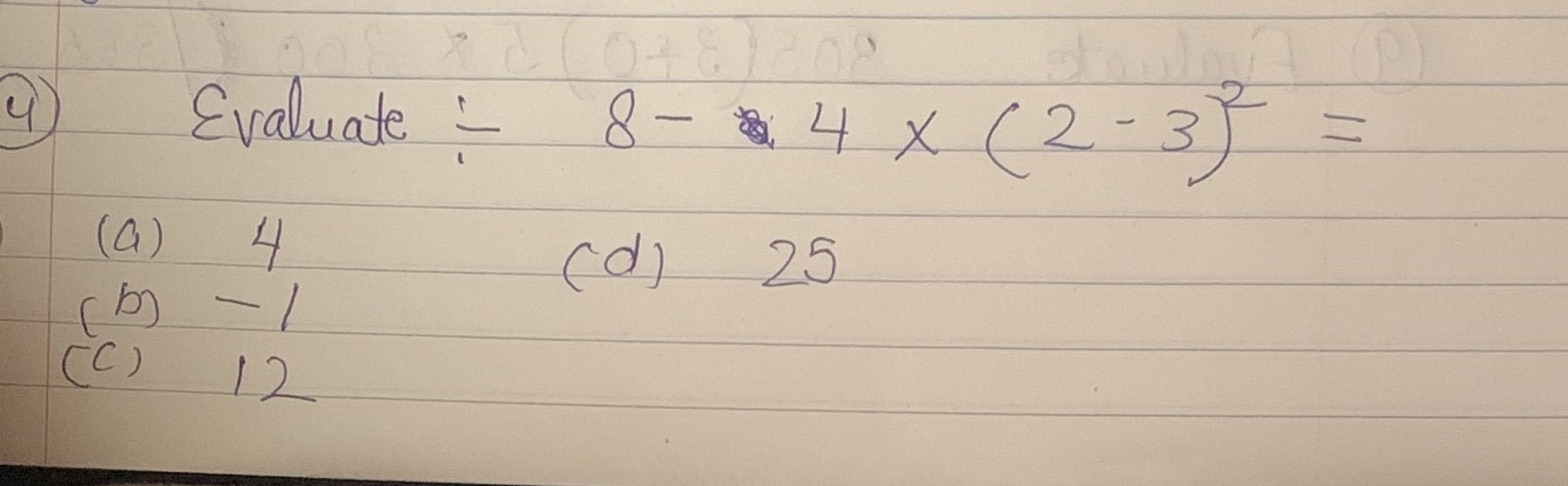 4) Evaluate ÷ 8 - 4 × (2 - 3)² =
(a) 4 (d) 25
(b) -1
(c) 12